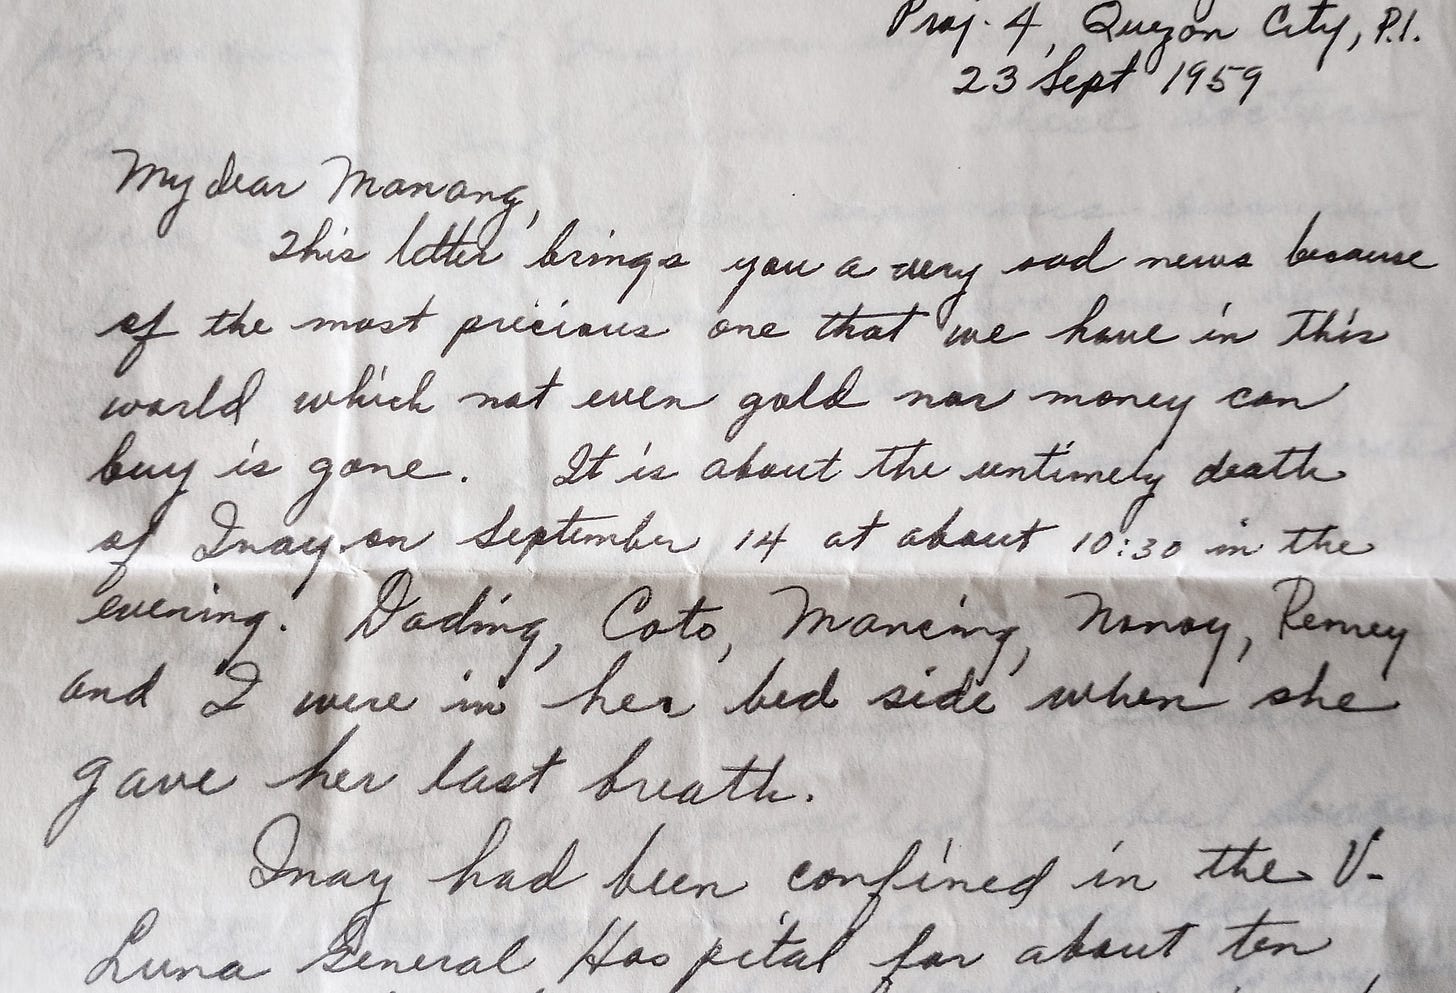 Proj. 4, Quezon City, P.I.
23 Sept 1959
My dear Manang,
This letter brings you a very sad news because
of the most precious one that we have in this
world which not even gold nor money can
buy is gone. It is about the untimely death
of Inay on September 14 at about 10:30 in the
evening. Dading, Coto, Mancing, Nonoy, Remey
and I were in her bed side when she
gave her last breath.
Inay had been confined in the V.
Luna General Hospital for about ten